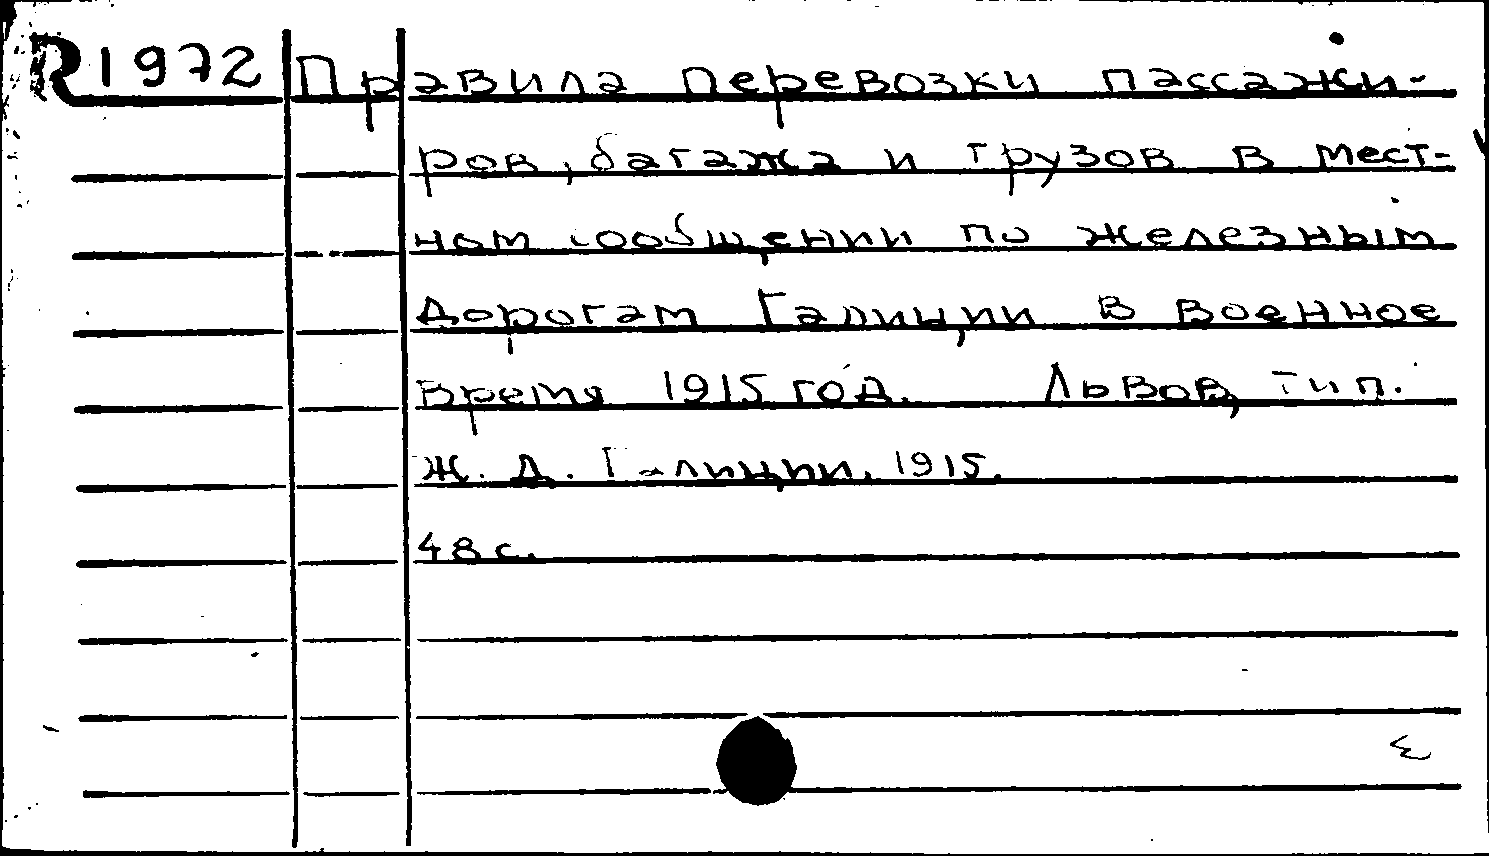 R1972 Правила перевозки пассажи-
ров, багажа и грузов в мест-
ном сообщении по железным
дорогам Галиции в военное
время 1915 год. Львов, тип.
Ж. Д. Галиции, 1915.
48 с.